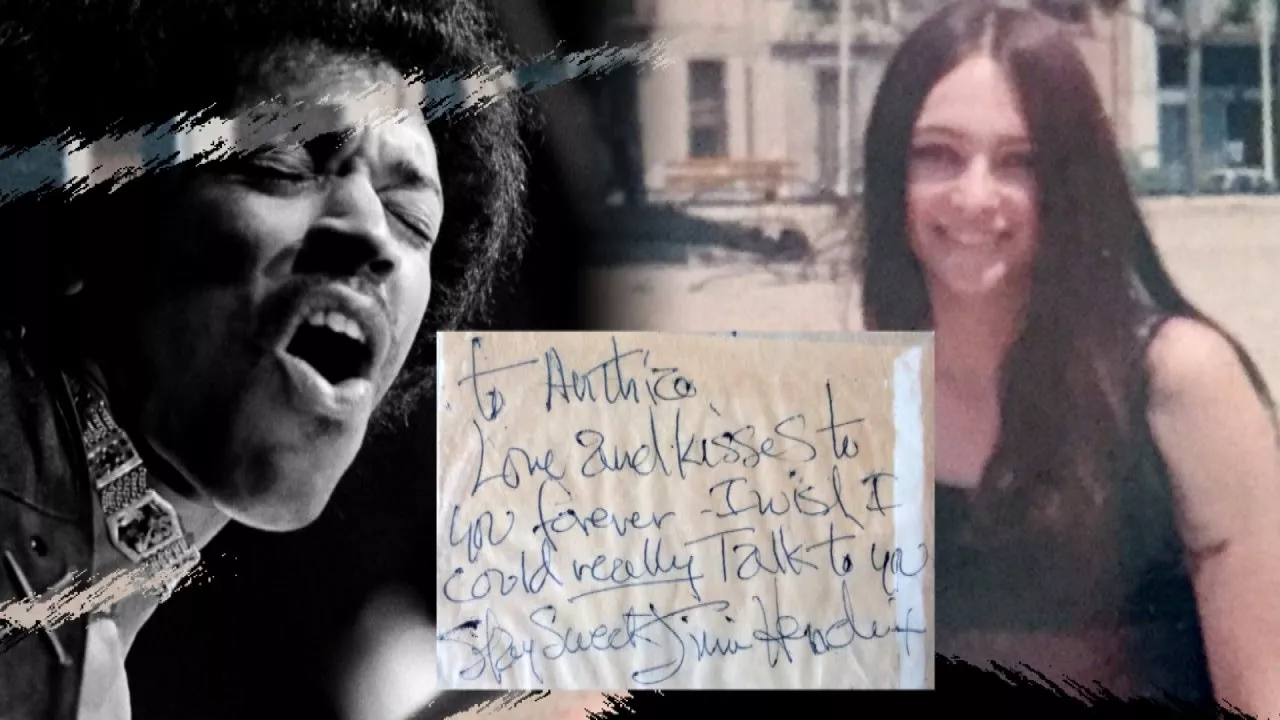 to Anthica
Love and kisses to
you forever - I wish I
could really Talk to you
Stay Sweet Jimi Hendrix